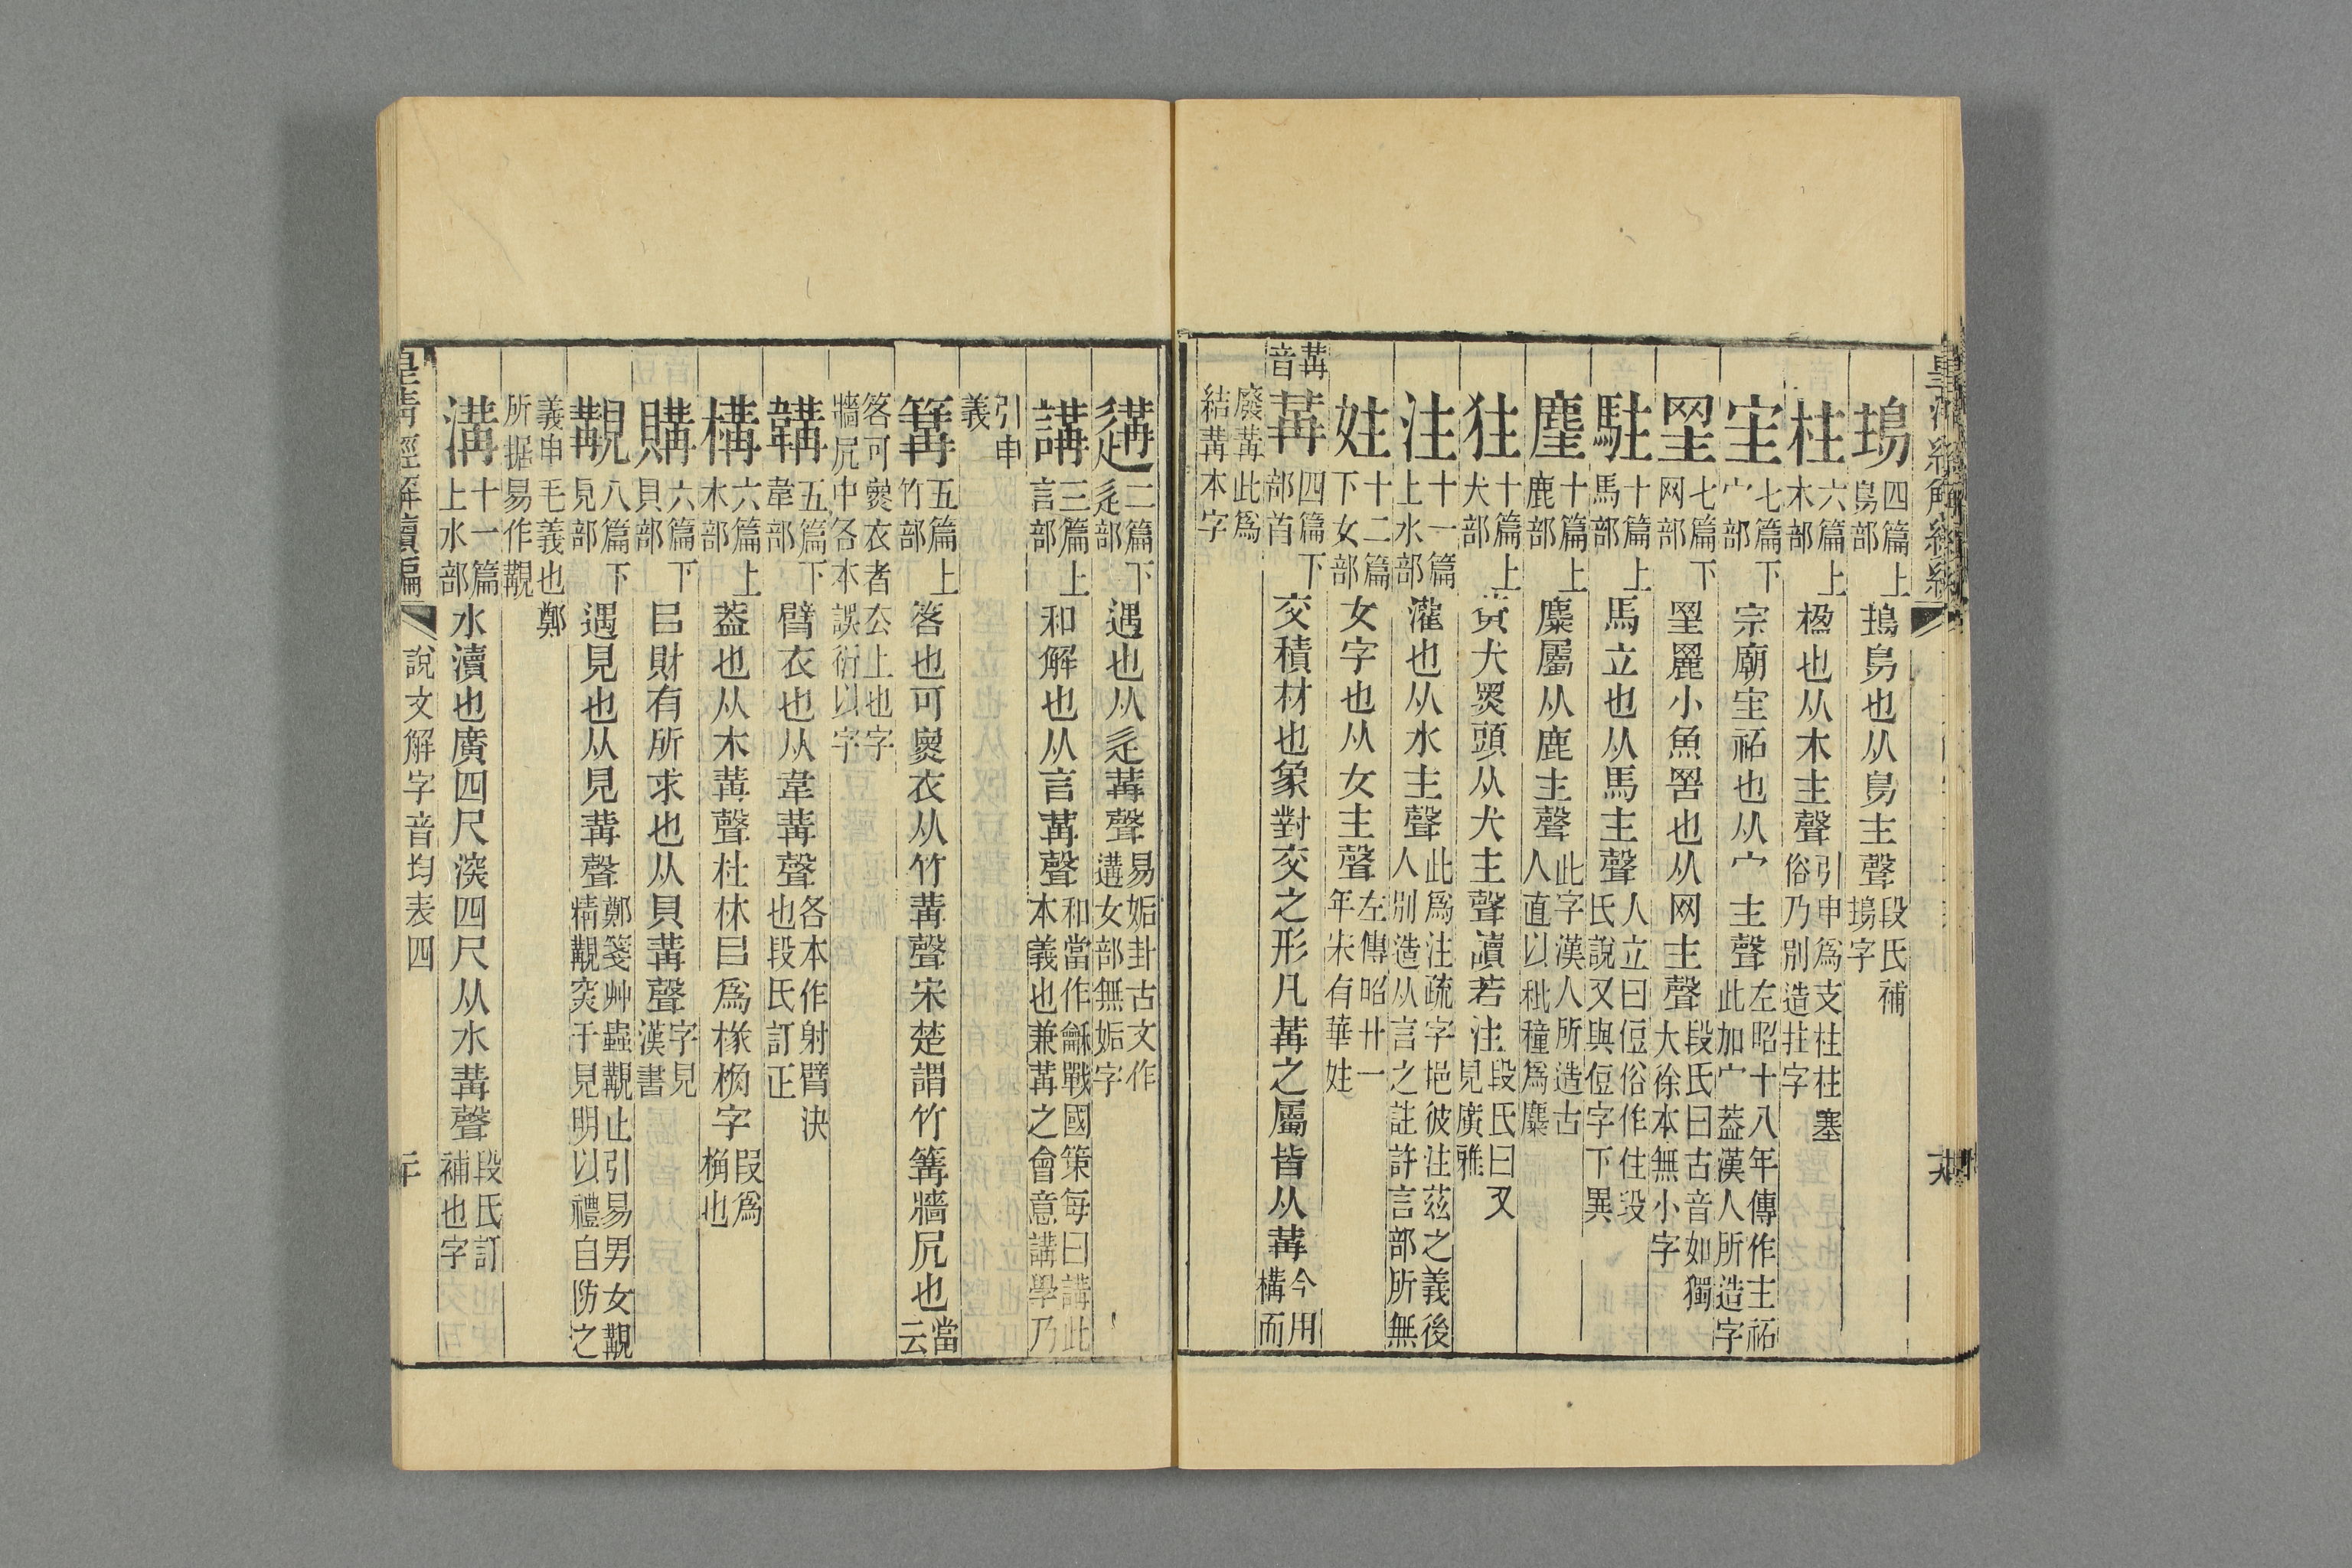 塢四篇上鳥部 塢鳥也从鳥主聲段氏補塢字
柱六篇上木部 楹也从木主聲引申爲支柱柱塞俗乃別造拄字
宔七篇下宀部 宗廟宔祏也从宀主聲左昭十八年傳作主祏此加宀葢漢人所造字
罜七篇下网部 罜麗小魚罟也从网主聲段氏曰古音如獨大徐本無小字
駐十篇上馬部 馬立也从馬主聲人立曰侸俗作住段氏說又與侸字下異
麈十篇上鹿部 麋屬从鹿主聲此字漢人所造古人直以秕穜爲麋
狂十篇上犬部 黃犬黑頭从犬主聲讀若注段氏曰又見廣雅
注十一篇上水部 灌也从水主聲此爲注疏字挹彼注茲之義後人別造从言之註許言部所無
妵十二篇下女部 女字也从女主聲左傳昭廿一年宋有華妵
冓音
冓四篇下部首 交積材也象對交之形凡冓之屬皆从冓今用構而
廢冓此爲結冓本字
遘二篇下辵部 遇也从辵冓聲易姤卦古文作遘女部無姤字
講三篇上言部 和解也从言冓聲和當作龢戰國策每曰講此本義也兼冓之會意講學乃
引申義
篝五篇上竹部 笿也可㷉衣从竹冓聲宋楚謂竹篝牆凥也當云
笿可㷉衣者公上也字牆凥中各本誤衍以字
韝五篇下韋部 臂衣也从韋冓聲各本作射臂決也段氏訂正
構六篇上木部 葢也从木冓聲杜林㠯爲椽桷字段爲桷也
購六篇下貝部 㠯財有所求也从貝冓聲字見漢書
覯八篇下見部 遇見也从見冓聲鄭箋艸蟲覯止引易男女覯精覯突于見明以禮自防之
義申毛義也鄭所据易作覯
溝十一篇上水部 水瀆也廣四尺㴱四尺从水冓聲段氏訂補也字
皇清經解續編 說文解字音均表四